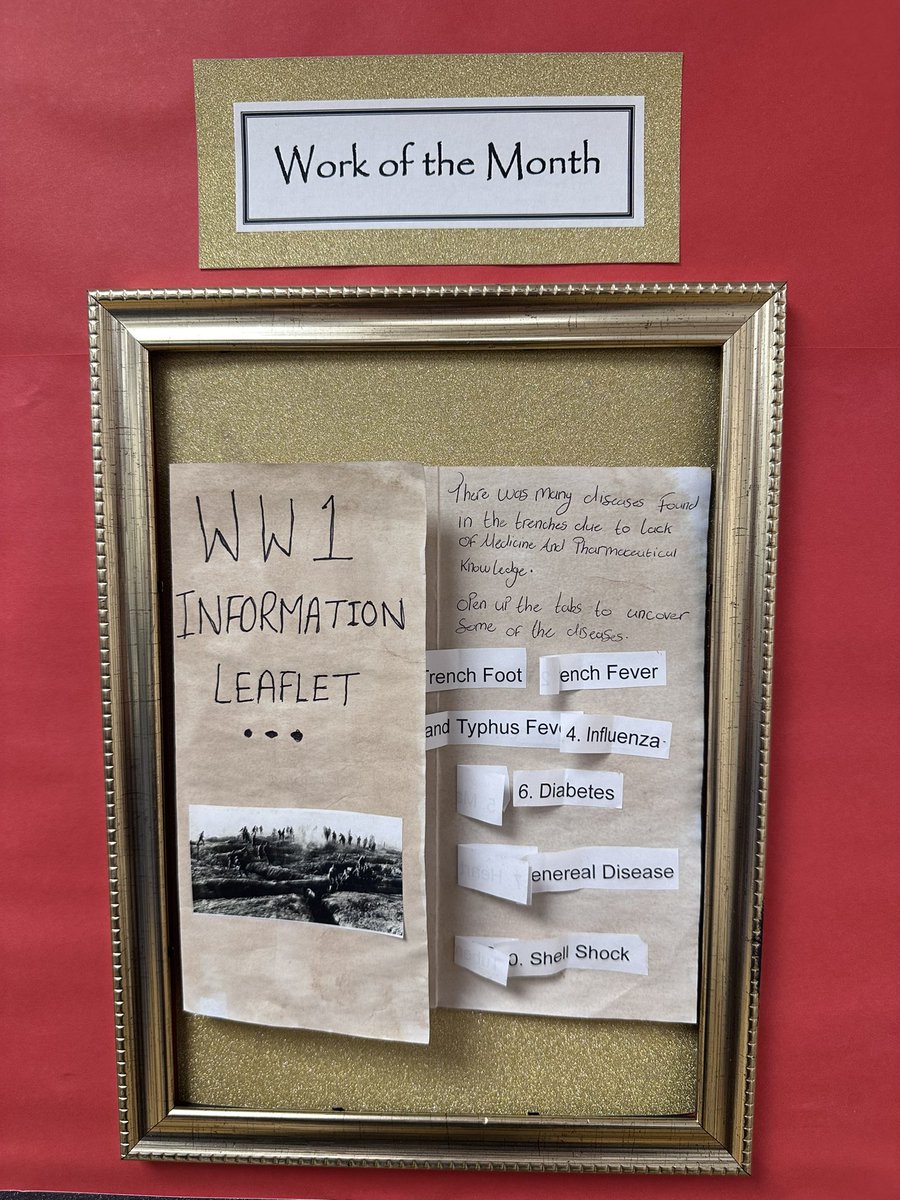 Work of the Month
WW1
INFORMATION
LEAFLET
...
There was many diseases found
in the trenches due to lack
of Medicine And Pharmaceutical
Knowledge.
open up the tabs to uncover
some of the diseases.
Trench Foot
ench Fever
and Typhus Fev
4. Influenza
6. Diabetes
enereal Disease
0. Shell Shock